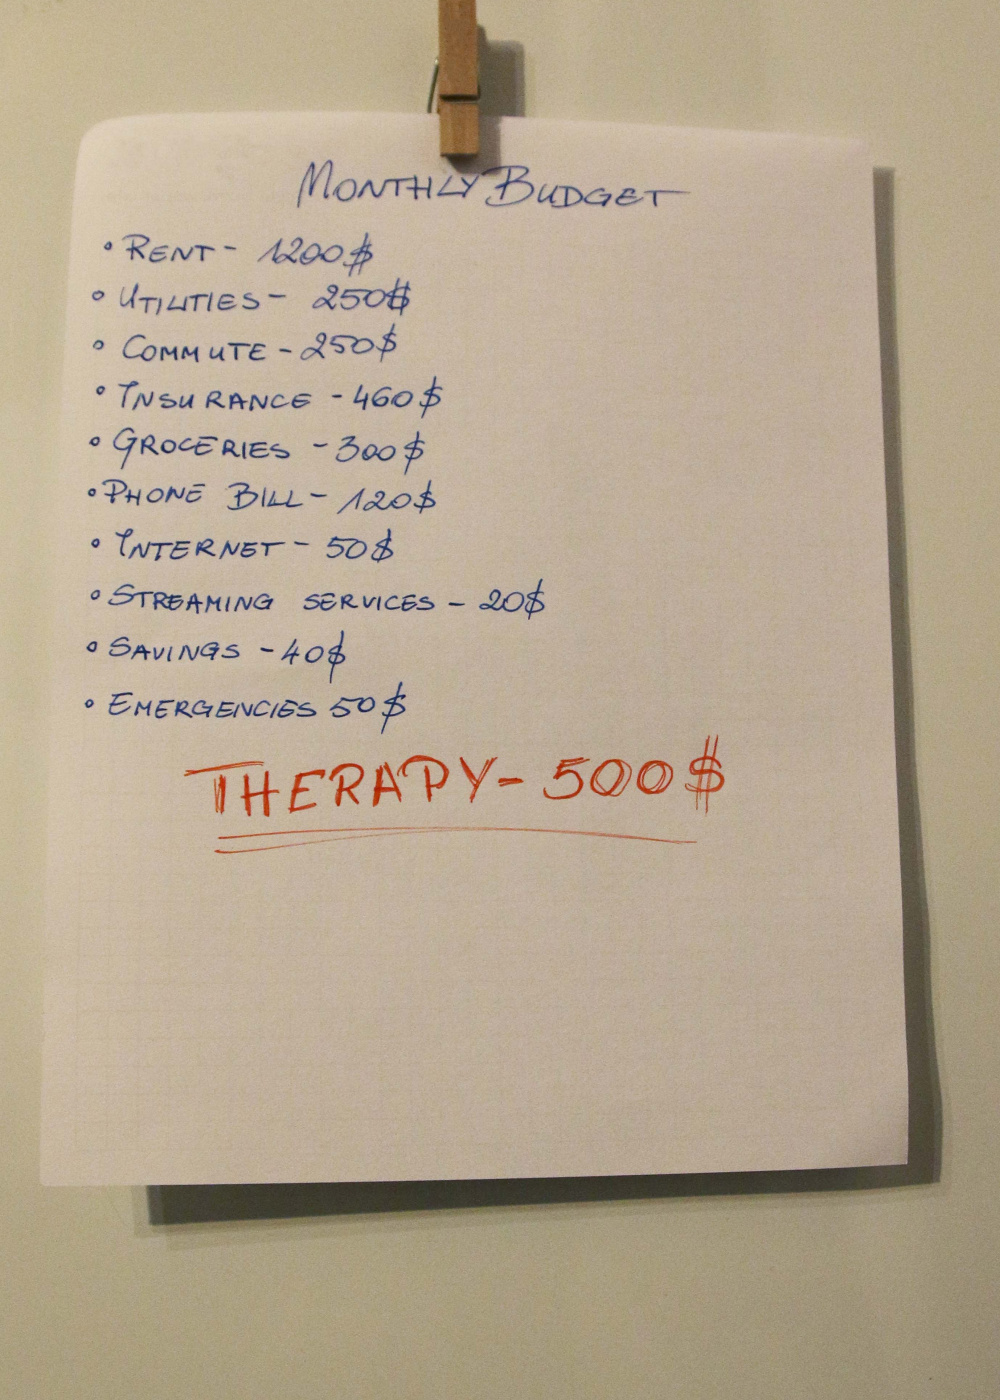 MONTHLY BUDGET
• RENT - 1200$
• UTILITIES - 250$
• COMMUTE - 250$
• INSURANCE - 460$
• GROCERIES - 300$
• PHONE BILL - 120$
• INTERNET - 50$
• STREAMING SERVICES - 20$
• SAVINGS - 40$
• EMERGENCIES 50$
THERAPY - 500$